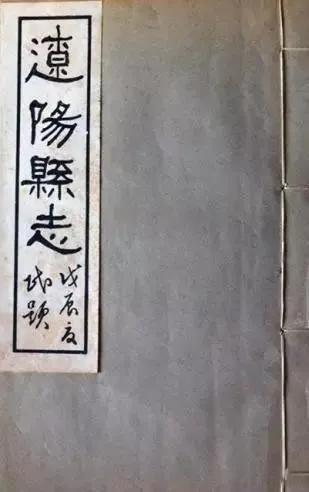 遼陽縣志
戊辰夏
題